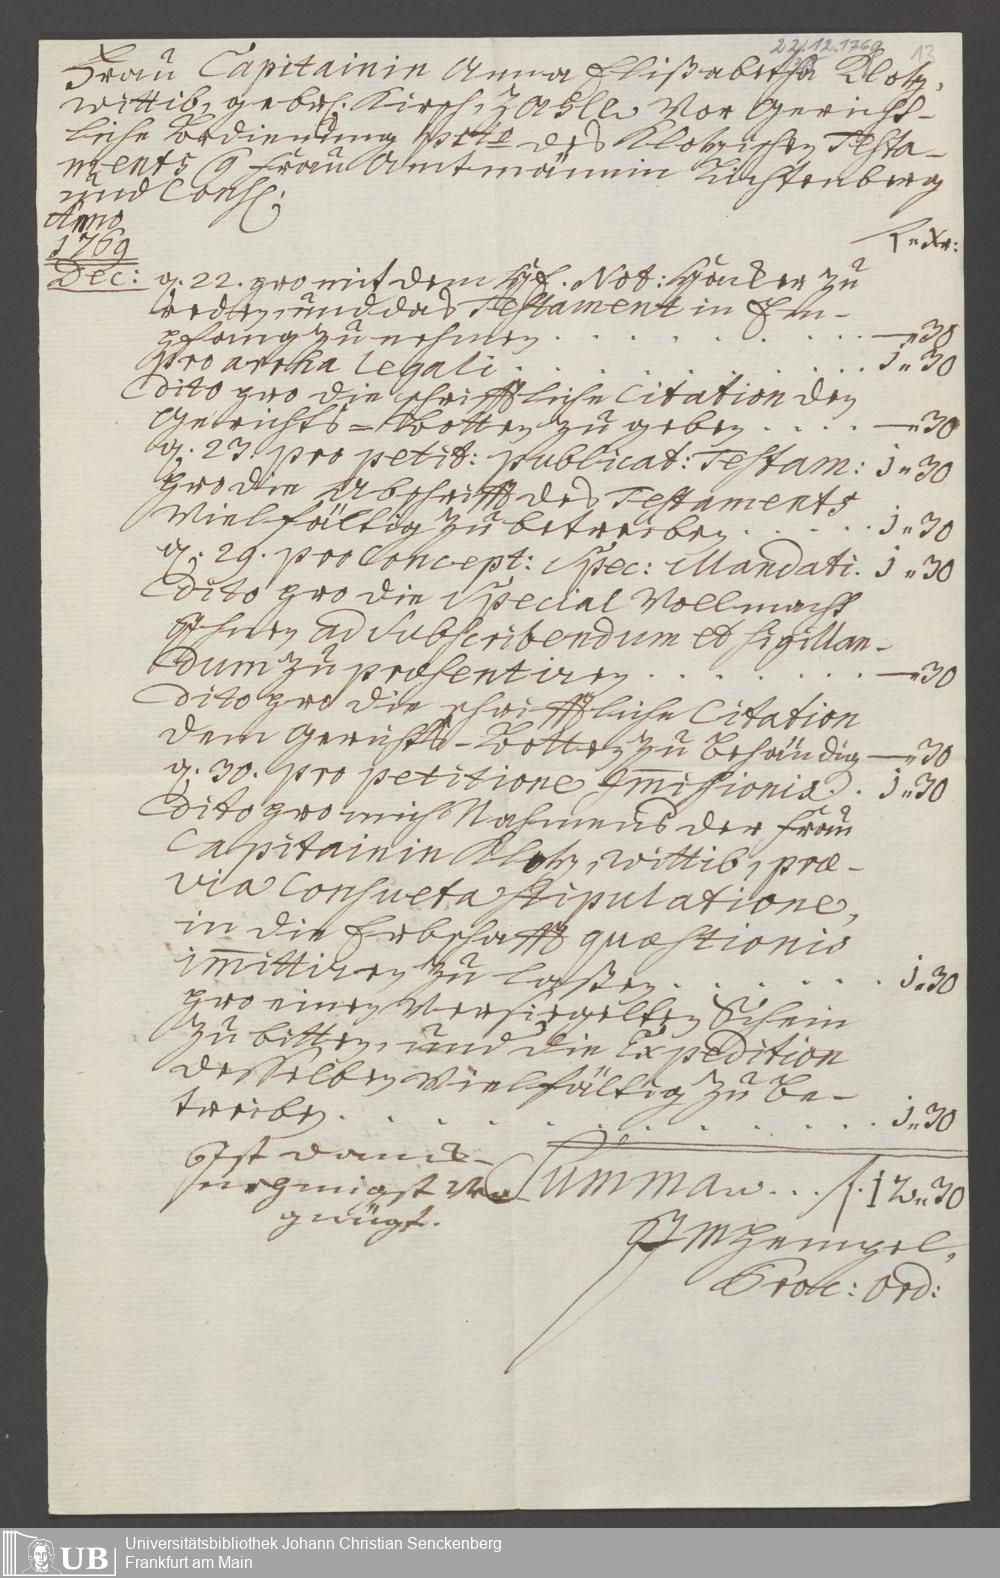 22.12.1769 13
Frau Capitainin Anna Elisabetha Klotz,
wittib, gebr. Kirch, zahle vor gericht-
liche bedienung pcto des Klotzischen Testa-
ments Frau Amtmännin Lichtenberg
und Cons:
Anno
1769
f " Xr:
Dec: d. 22. pro mit dem Not: zu
reden, und das Testament in Em-
pfang zu nehmen . . . . . . . . . — " 30
pro arrha legali . . . . . . . . . . . 1 " 30
Dito pro die schrifftliche Citation den
Gerichts-Botten zu geben . . . . — " 30
d. 23. pro petit: publicat: Testam: 1 " 30
pro die Abschrifft des Testaments
vielfältig zu betreiben . . . . . 1 " 30
d. 29. pro Concept: Spec: Mandati. 1 " 30
Dito pro die Special Vollmacht
Ihnen ad subscribendum et sigillan-
dum zu præsentiren . . . . . . . — " 30
Dito pro die schrifftliche Citation
dem Gerichts-Botten zu behändig — " 30
d. 30. pro petitione Immissionis . . 1 " 30
Dito pro mich Nahmens der Frau
Capitainin Klotz, wittib, præ-
via Consueta stipulatione,
in die Erbschafft quæstionis
immittiren zu laßen . . . . . . 1 " 30
pro einen versiegelten Schein
zu bitten, und die Expedition
desselben vielfältig zu be-
treiben . . . . . . . . . . . . 1 " 30
Summa . . . f. 12 " 30
Ist danck-
nehmigst ver-
gnügt.
Hempel,
Proc: Ord:
UB Universitätsbibliothek Johann Christian Senckenberg
Frankfurt am Main